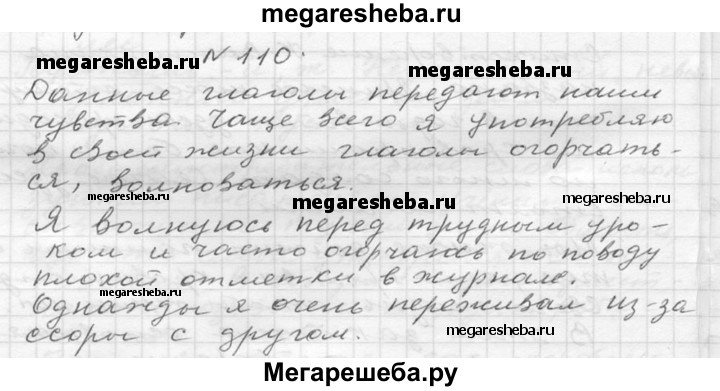 megaresheba.ru
№ 110.
megaresheba.ru
megaresheba.ru
Данные глаголы передают наши
чувства. Чаще всего я употребляю
в своей жизни глаголы огорчать-
ся, волноваться.
megaresheba.ru
megaresheba.ru
megaresheba.ru
Я волнуюсь перед трудным уро-
ком и часто огорчаюсь по поводу
плохой отметки в журнале.
megaresheba.ru
Однажды я очень переживал из-за
ссоры с другом.
megaresheba.ru
Мегарешеба.ру